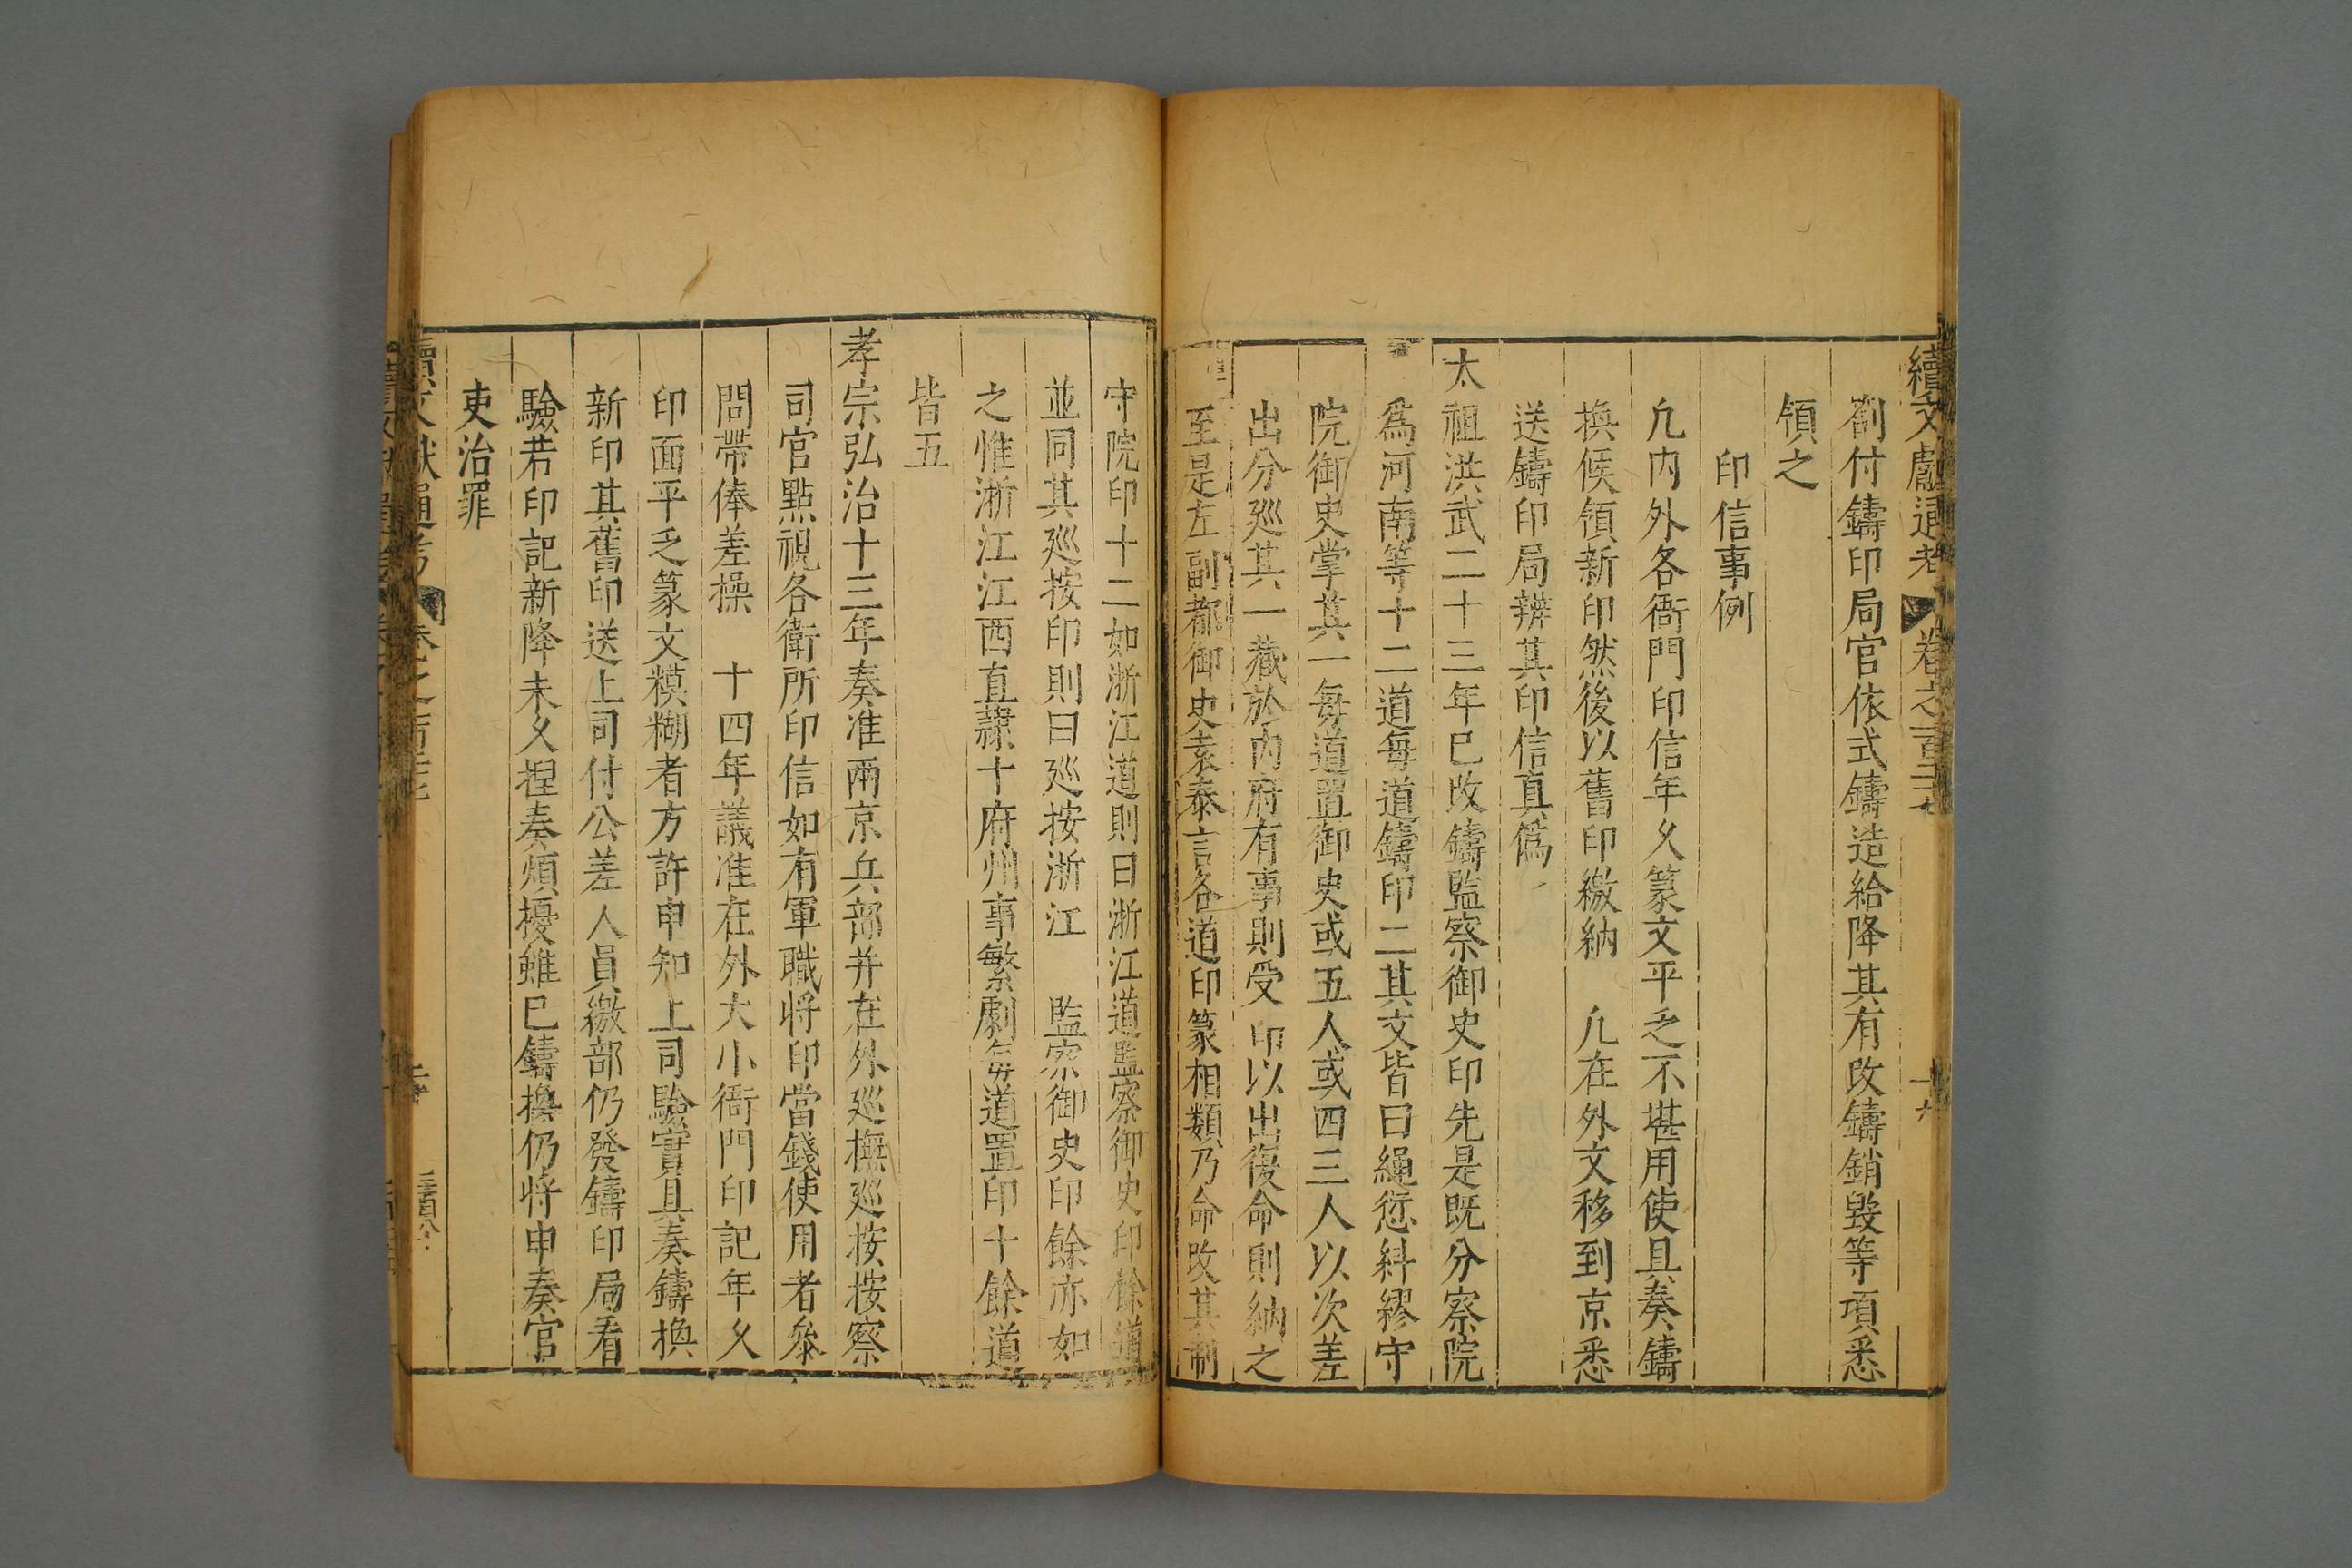 續文獻通考 卷之百
劄付鑄印局官依式鑄造給降其有改鑄銷毀等項悉
領之
印信事例
凢内外各衙門印信年乆篆文平乏不堪用使具奏鑄
換候領新印然後以舊印繳納 凢在外文移到京悉
送鑄印局辨其印信真僞
太祖洪武二十三年巳改鑄監察御史印先是既分察院
爲河南等十二道每道鑄印二其文皆曰繩愆糾繆守
院御史掌其一每道置御史或五人或四三人以次差
出分廵其一藏於内府有事則受印以出復命則納之
至是左副都御史袁泰言各道印篆相類乃命改其制
守院印十二如浙江道則曰浙江道監察御史印餘道
並同其廵按印則曰廵按浙江 監察御史印餘亦如
之惟浙江江西直隸十府州事繁劇每道置印十餘道
皆五
孝宗弘治十三年奏准兩京兵部并在外廵撫廵按按察
司官點視各衛所印信如有軍職將印當錢使用者叅
問帶俸差操 十四年議准在外大小衙門印記年乆
印面平乏篆文糢糊者方許申知上司驗實具奏鑄換
新印其舊印送上司付公差人員繳部仍發鑄印局看
驗若印記新降未乆捏奏煩擾雖巳鑄換仍将申奏官
吏治罪
續文獻通考